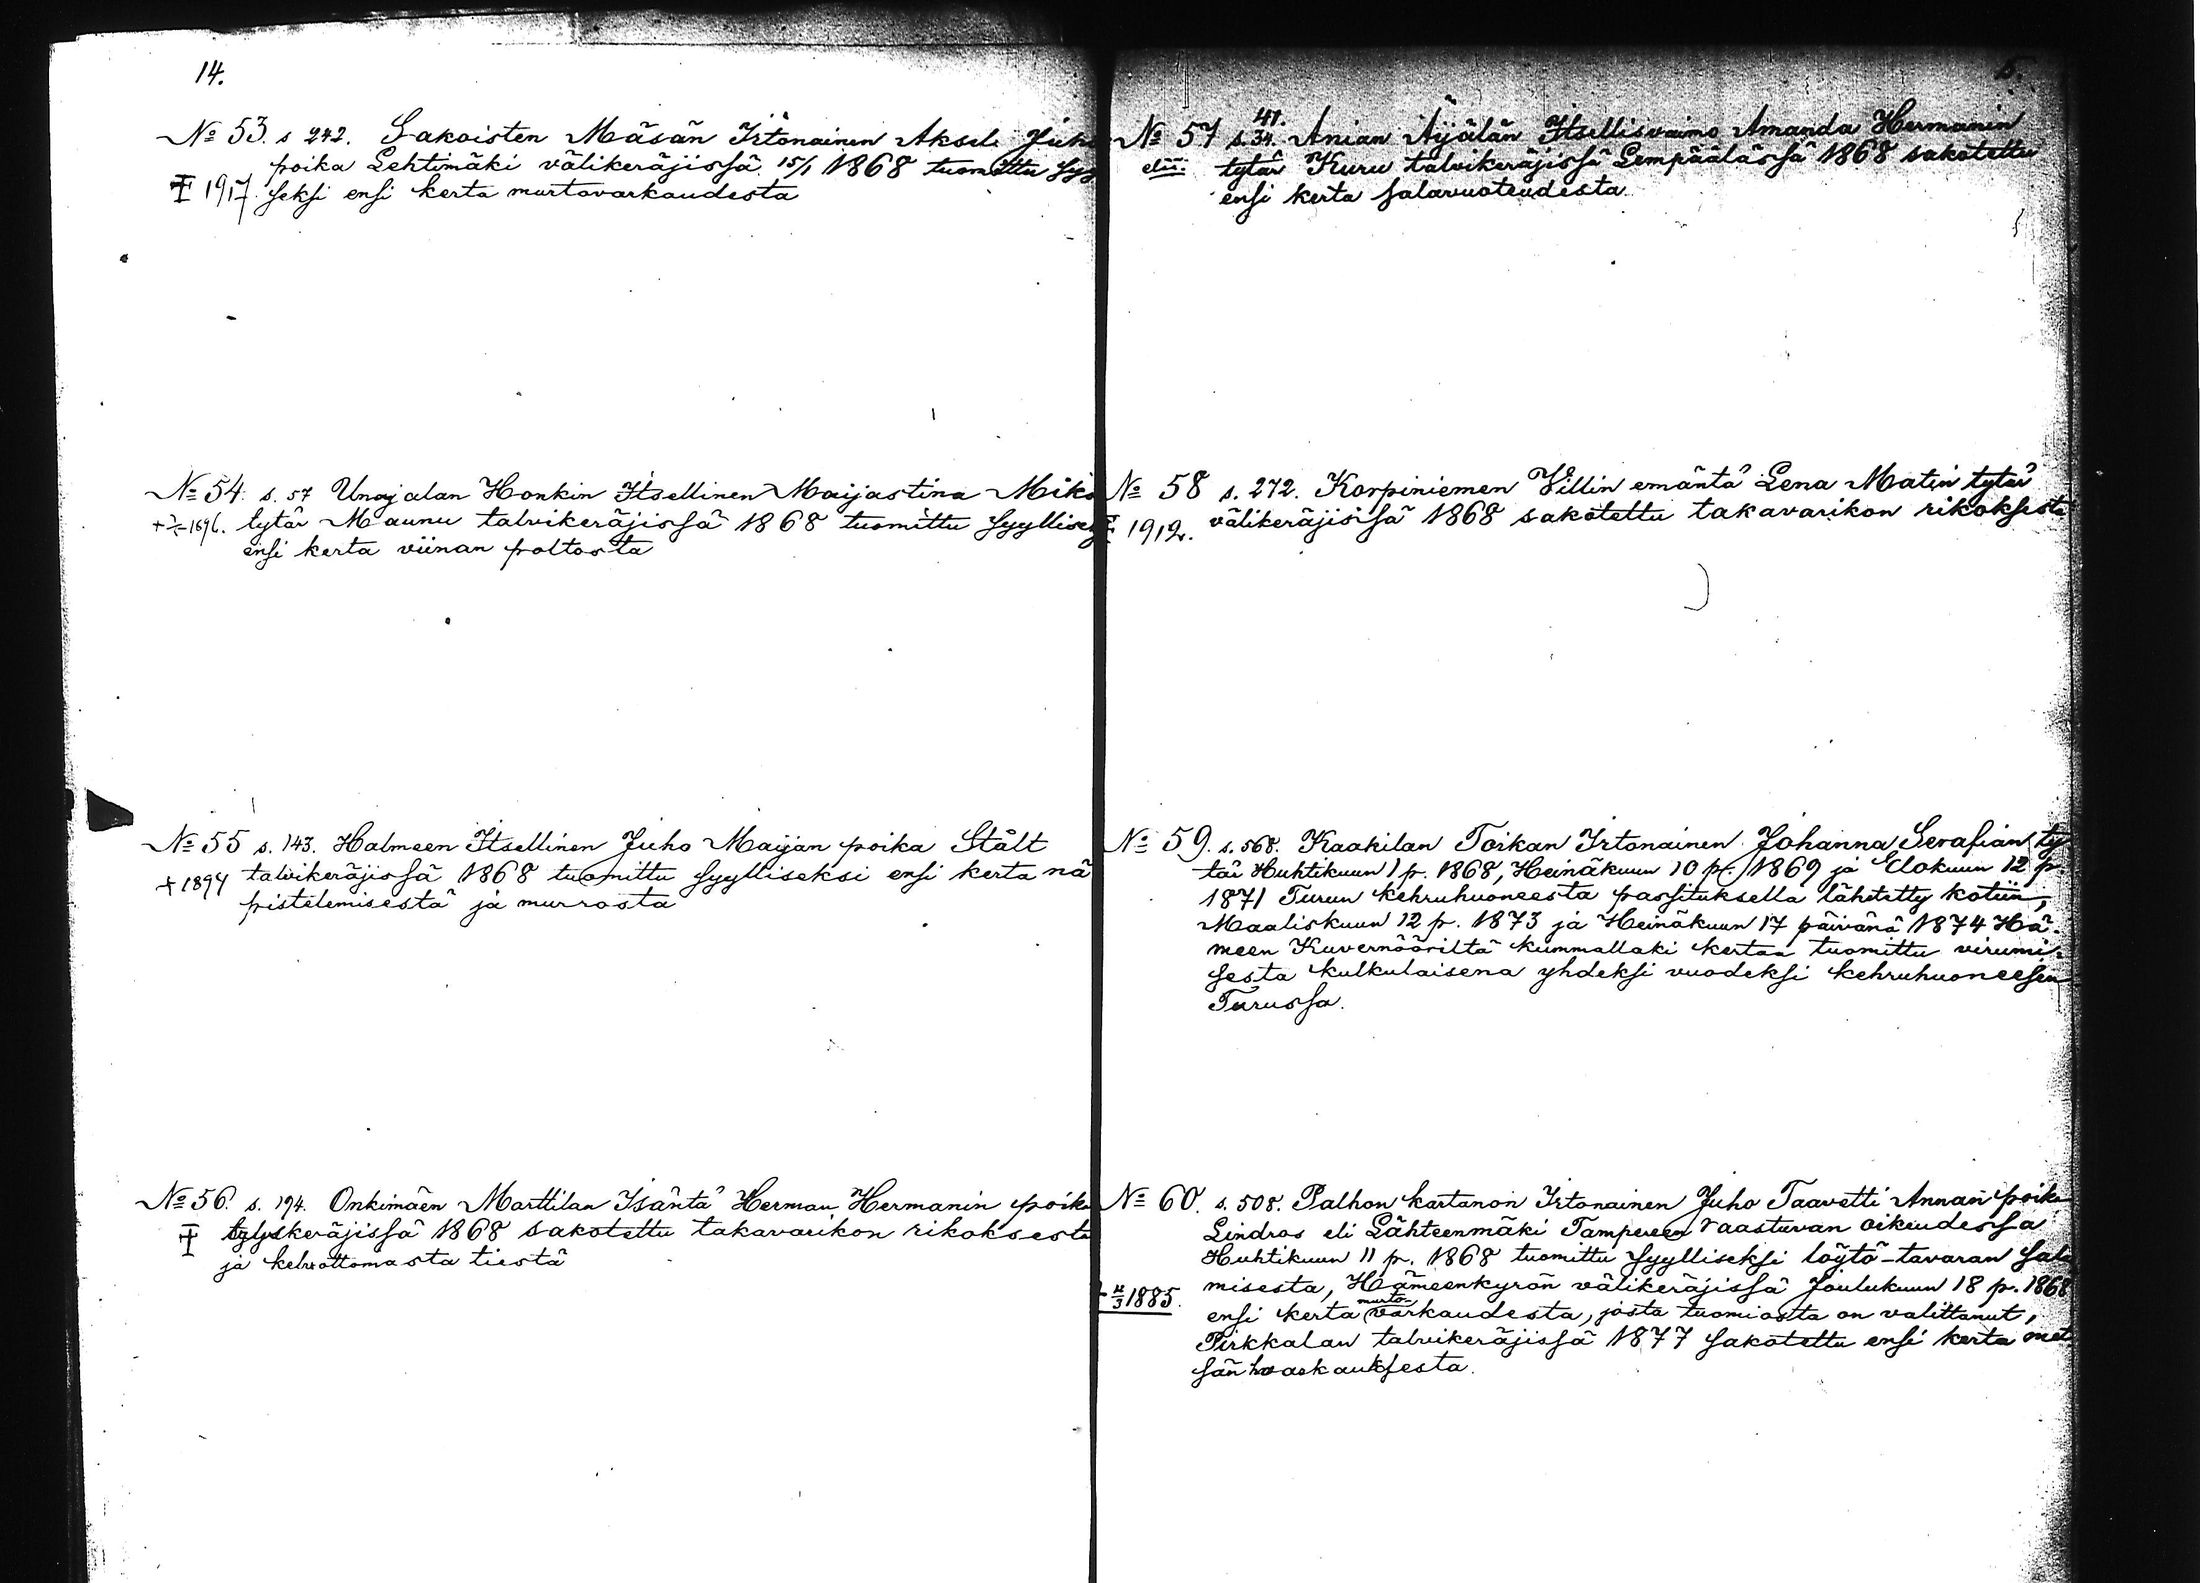 14.
№ 53. s 242. Sakoisten Mäsän Irtonainen Akseli Juho
poika Lehtimäki välikeräjissä 15/1 1868 tuomittu syy
‡ 1917. seksi ensi kerta murtovarkaudesta
№ 54. s. 57 Unajalan Honkin Itsellinen Maijastina Mik
tytär Maunu talvikeräjissä 1868 tuomittu syyllise
ensi kerta viinan poltosta
№ 55 s. 143. Halmeen Itsellinen Juho Maijan poika Stålt
+ 1894 talvikeräjissä 1868 tuomittu syylliseksi ensi kerta nä
pistelemisestä ja murrosta
№ 56. s. 194. Onkimäen Marttilan Isäntä Herman Hermanin poika
‡ syyskeräjissä 1868 sakotettu takavarikon rikoksesta
ja kelvottomasta tiestä
5.
41.
№ 57 s. 34. Anian Äijälän Itsellisvaimo Amanda Hermanin
elii. tytär Kuru talvikeräjissä Lempäälässä 1868 sakotettu
ensi kerta salavuoteudesta
№ 58 s. 272. Korpiniemen Villin emäntä Lena Matin tytär
‡ 1912. välikeräjissä 1868 sakotettu takavarikon rikoksesta
№ 59. s. 568. Kaakilan Toikan Irtonainen Johanna Serafian ty
tär Huhtikuun 1 p. 1868, Heinäkuun 10 p. 1869 ja Elokuun 12 p.
1871 Turun kehruhuoneesta passituksella lähetetty kotiin,
Maaliskuun 12 p. 1873 ja Heinäkuun 17 päivänä 1874 Hä-
meen Kuvernööriltä kummallaki kertaa tuomittu virumi-
sesta kulkulaisena yhdeksi vuodeksi kehruhuoneesen
Turussa.
№ 60. s. 508. Palhon kartanon Irtonainen Juho Taavetti Annan poika
Lindros eli Lähteenmäki Tampereen Raastuvan oikeudessa
Huhtikuun 11 p. 1868 tuomittu syylliseksi löytö-tavaran sala
misesta, Hämeenkyrön välikeräjissä Joulukuun 18 p. 1868
1885. ensi kerta murto-varkaudesta, josta tuomiosta on valittanut,
Pirkkalan talvikeräjissä 1877 sakotettu ensi kerta met
sän haaskauksesta.